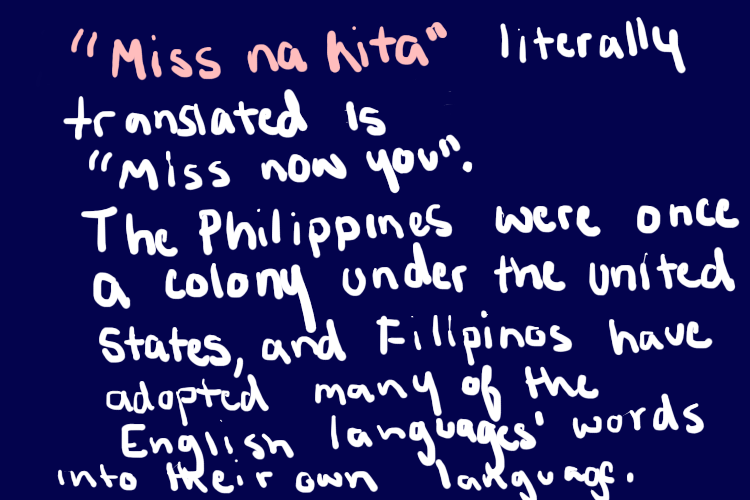 "Miss na kita" literally
translated is
"Miss now you".
The Philippines were once
a colony under the united
states, and Fillipinos have
adopted many of the
English languages' words
into their own language.